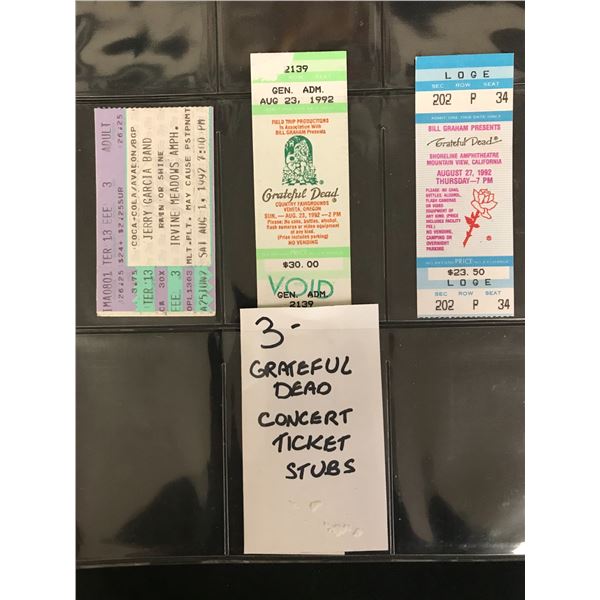 IMA0801 TER 13 EEE 3 ADULT
COCA-COLA/AVALON/BGP
RAIN OR SHINE
JERRY GARCIA BAND
IRVINE MEADOWS AMPH.
MLT.PLT. MAY CAUSE PSTPNMT
SAT AUG 1, 1992 7:00 PM
TER 13
EEE 3
2139
GEN. ADM.
AUG 23, 1992
FIELD TRIP PRODUCTIONS
In Association With
BILL GRAHAM Presents
Grateful Dead
COUNTRY FAIRGROUNDS
VENETA, OREGON
SUN. — AUG. 23, 1992 — 2 PM
Please: No cans, bottles, alcohol,
flash cameras or video equipment
of any kind!
(Price includes parking)
NO VENDING
PRICE
$30.00
VOID
GEN. ADM
2139
LOGE
SEC ROW SEAT
202 P 34
ADMIT ONE THIS DATE ONLY
BILL GRAHAM PRESENTS
Grateful Dead®
SHORELINE AMPHITHEATRE
MOUNTAIN VIEW, CALIFORNIA
AUGUST 27, 1992
THURSDAY—7 PM
PLEASE: NO CANS,
BOTTLES, ALCOHOL,
FLASH CAMERAS
OR VIDEO
EQUIPMENT OF
ANY KIND. PRICE
INCLUDES FACILITY
FEE.
NO VENDING,
CAMPING OR
OVERNIGHT
PARKING
PRICE
$23.50
LOGE
SEC ROW SEAT
202 P 34
3-
GRATEFUL
DEAD
CONCERT
TICKET
STUBS